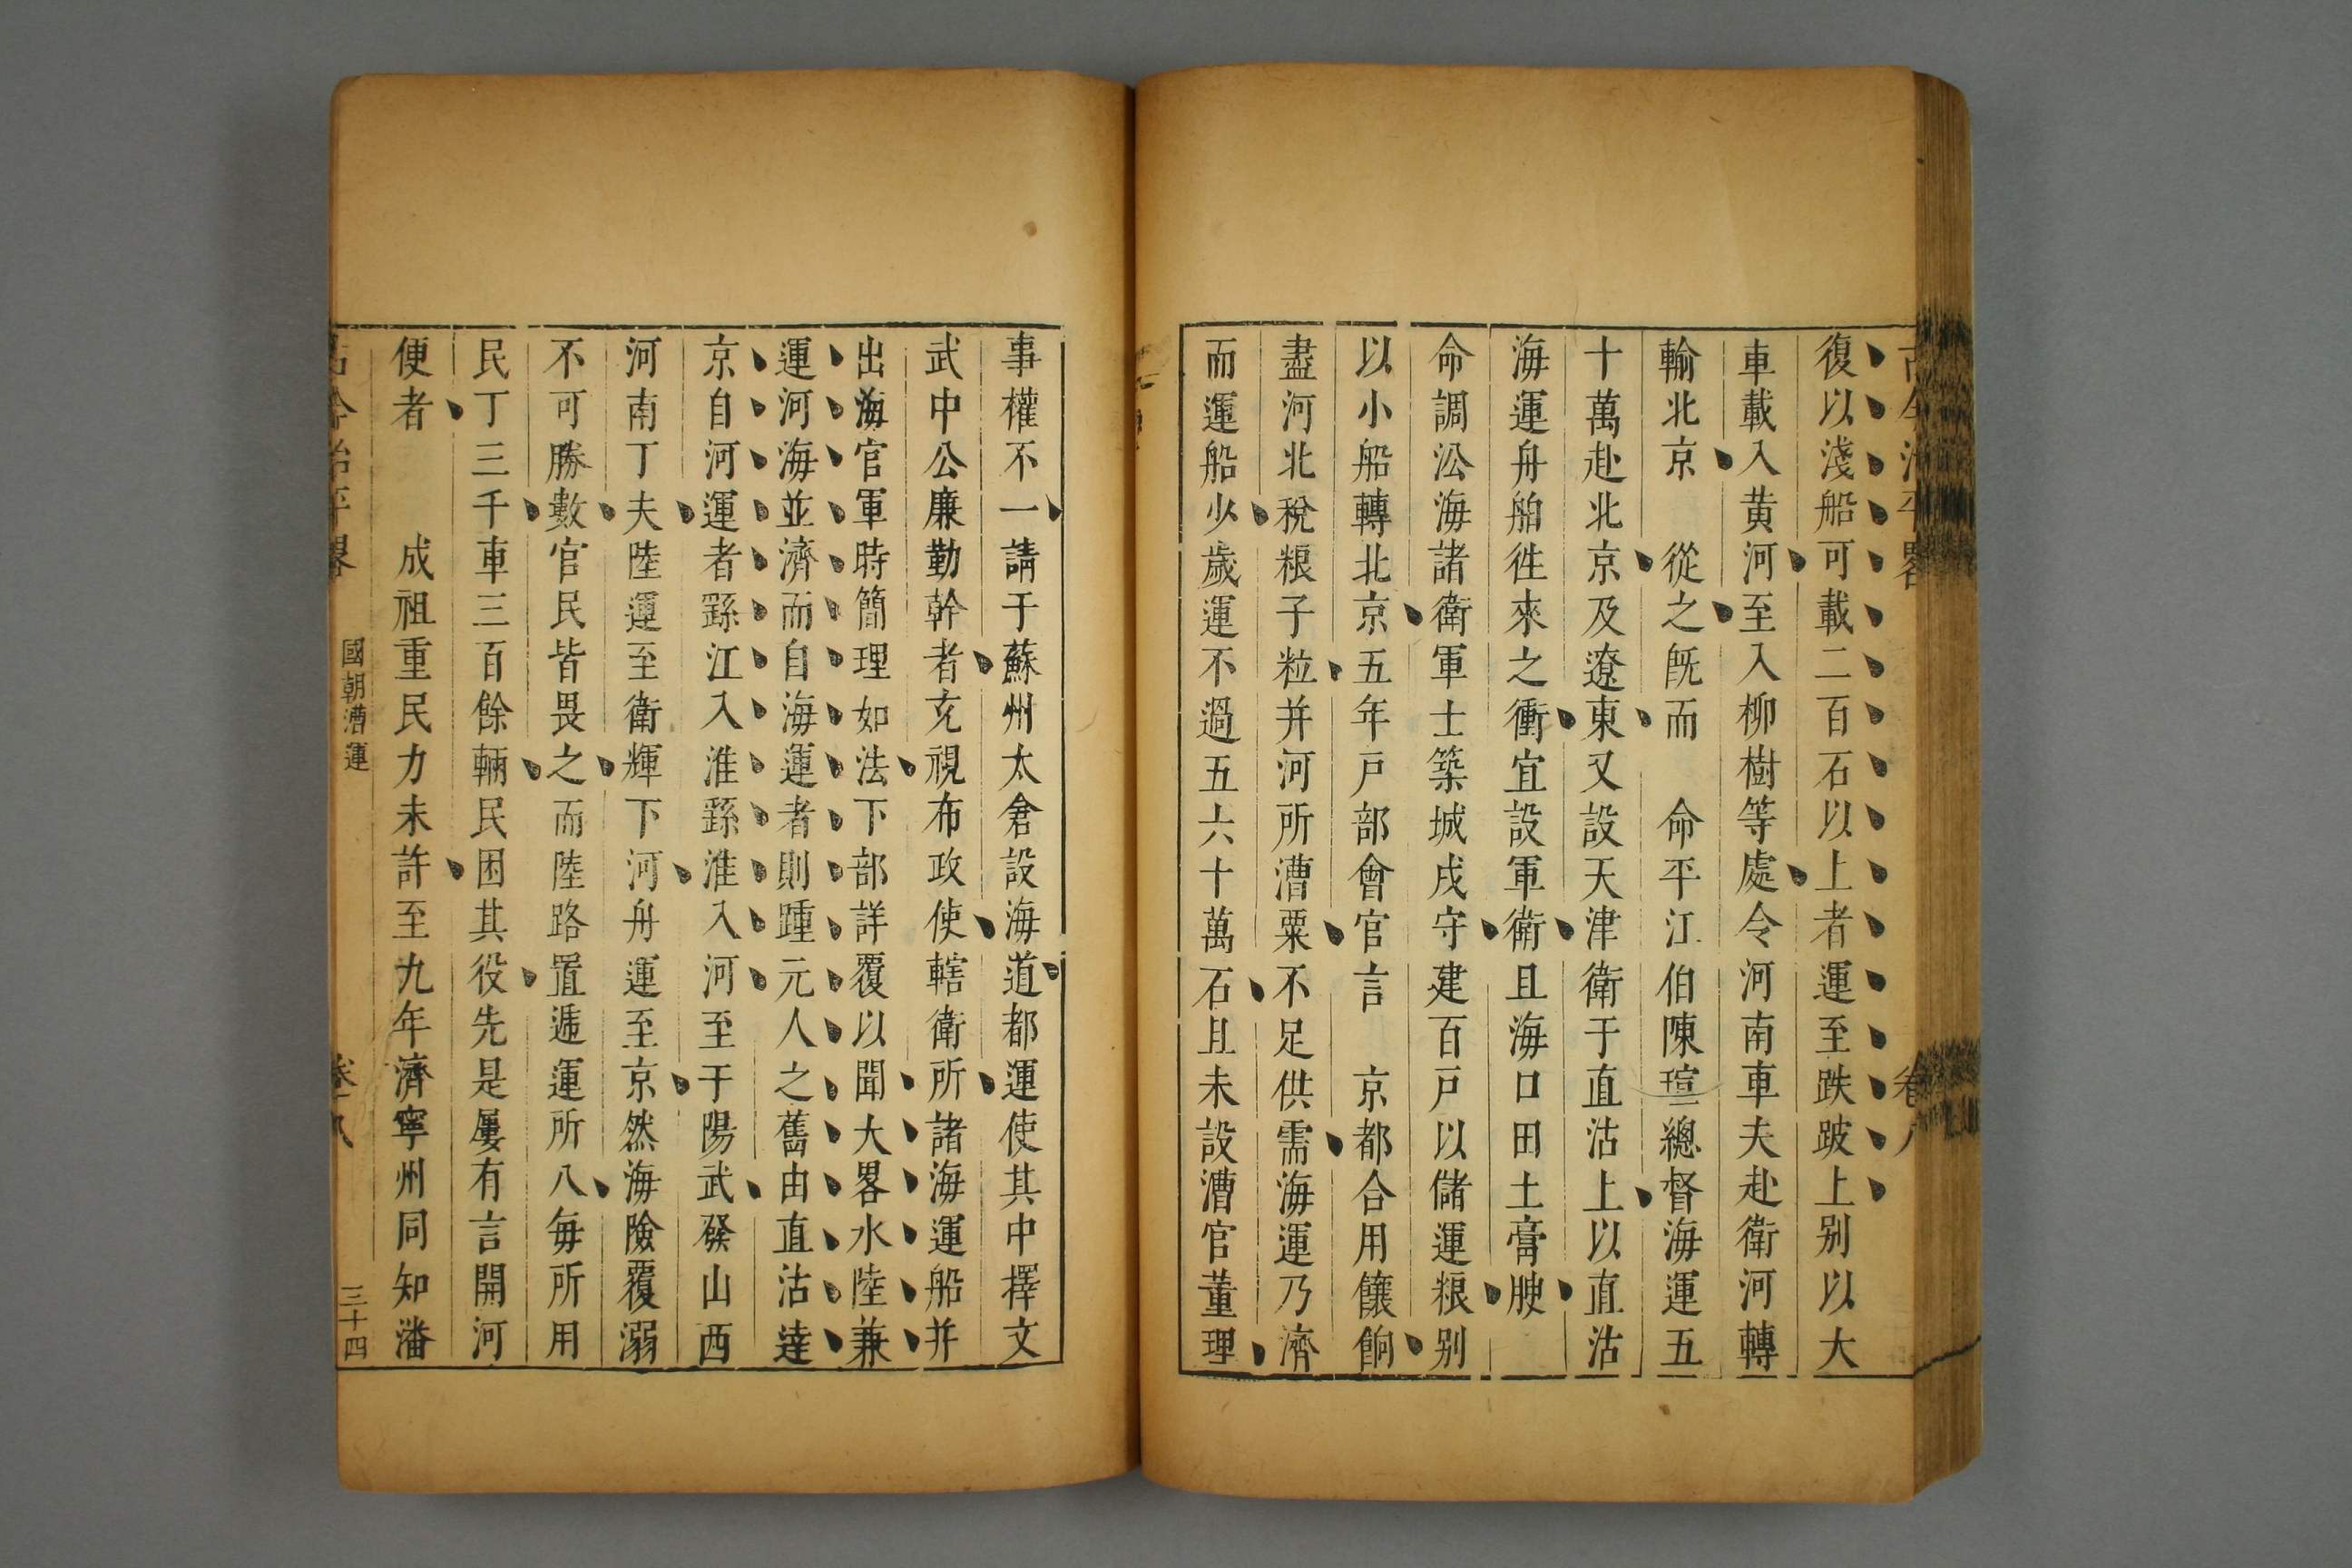 古今治平畧
卷八
復以淺船可載二百石以上者運至跌跛上别以大
車載入黄河至入柳樹等處令河南車夫赴衛河轉
輸北京　從之旣而　命平江伯陳瑄總督海運五
十萬赴北京及遼東又設天津衛于直沽上以直沽
海運舟舶徃來之衝宜設軍衛且海口田土膏腴
命調㳂海諸衛軍士築城戍守建百戸以儲運粮别
以小船轉北京五年戸部會官言　京都合用饟餉
盡河北稅粮子粒并河所漕粟不足供需海運乃濟
而運船少歲運不過五六十萬石且未設漕官董理
事權不一請于蘇州太倉設海道都運使其中擇文
武中公廉勤幹者充視布政使轄衛所諸海運船并
出海官軍時簡理如法下部詳覆以聞大畧水陸兼
運河海並濟而自海運者則踵元人之舊由直沽達
京自河運者繇江入淮繇淮入河至于陽武發山西
河南丁夫陸運至衛輝下河舟運至京然海險覆溺
不可勝數官民皆畏之而陸路置遞運所八每所用
民丁三千車三百餘輛民困其役先是屢有言開河
便者　　成祖重民力未許至九年濟寧州同知潘
古今治平畧
國朝漕運
卷八
三十四